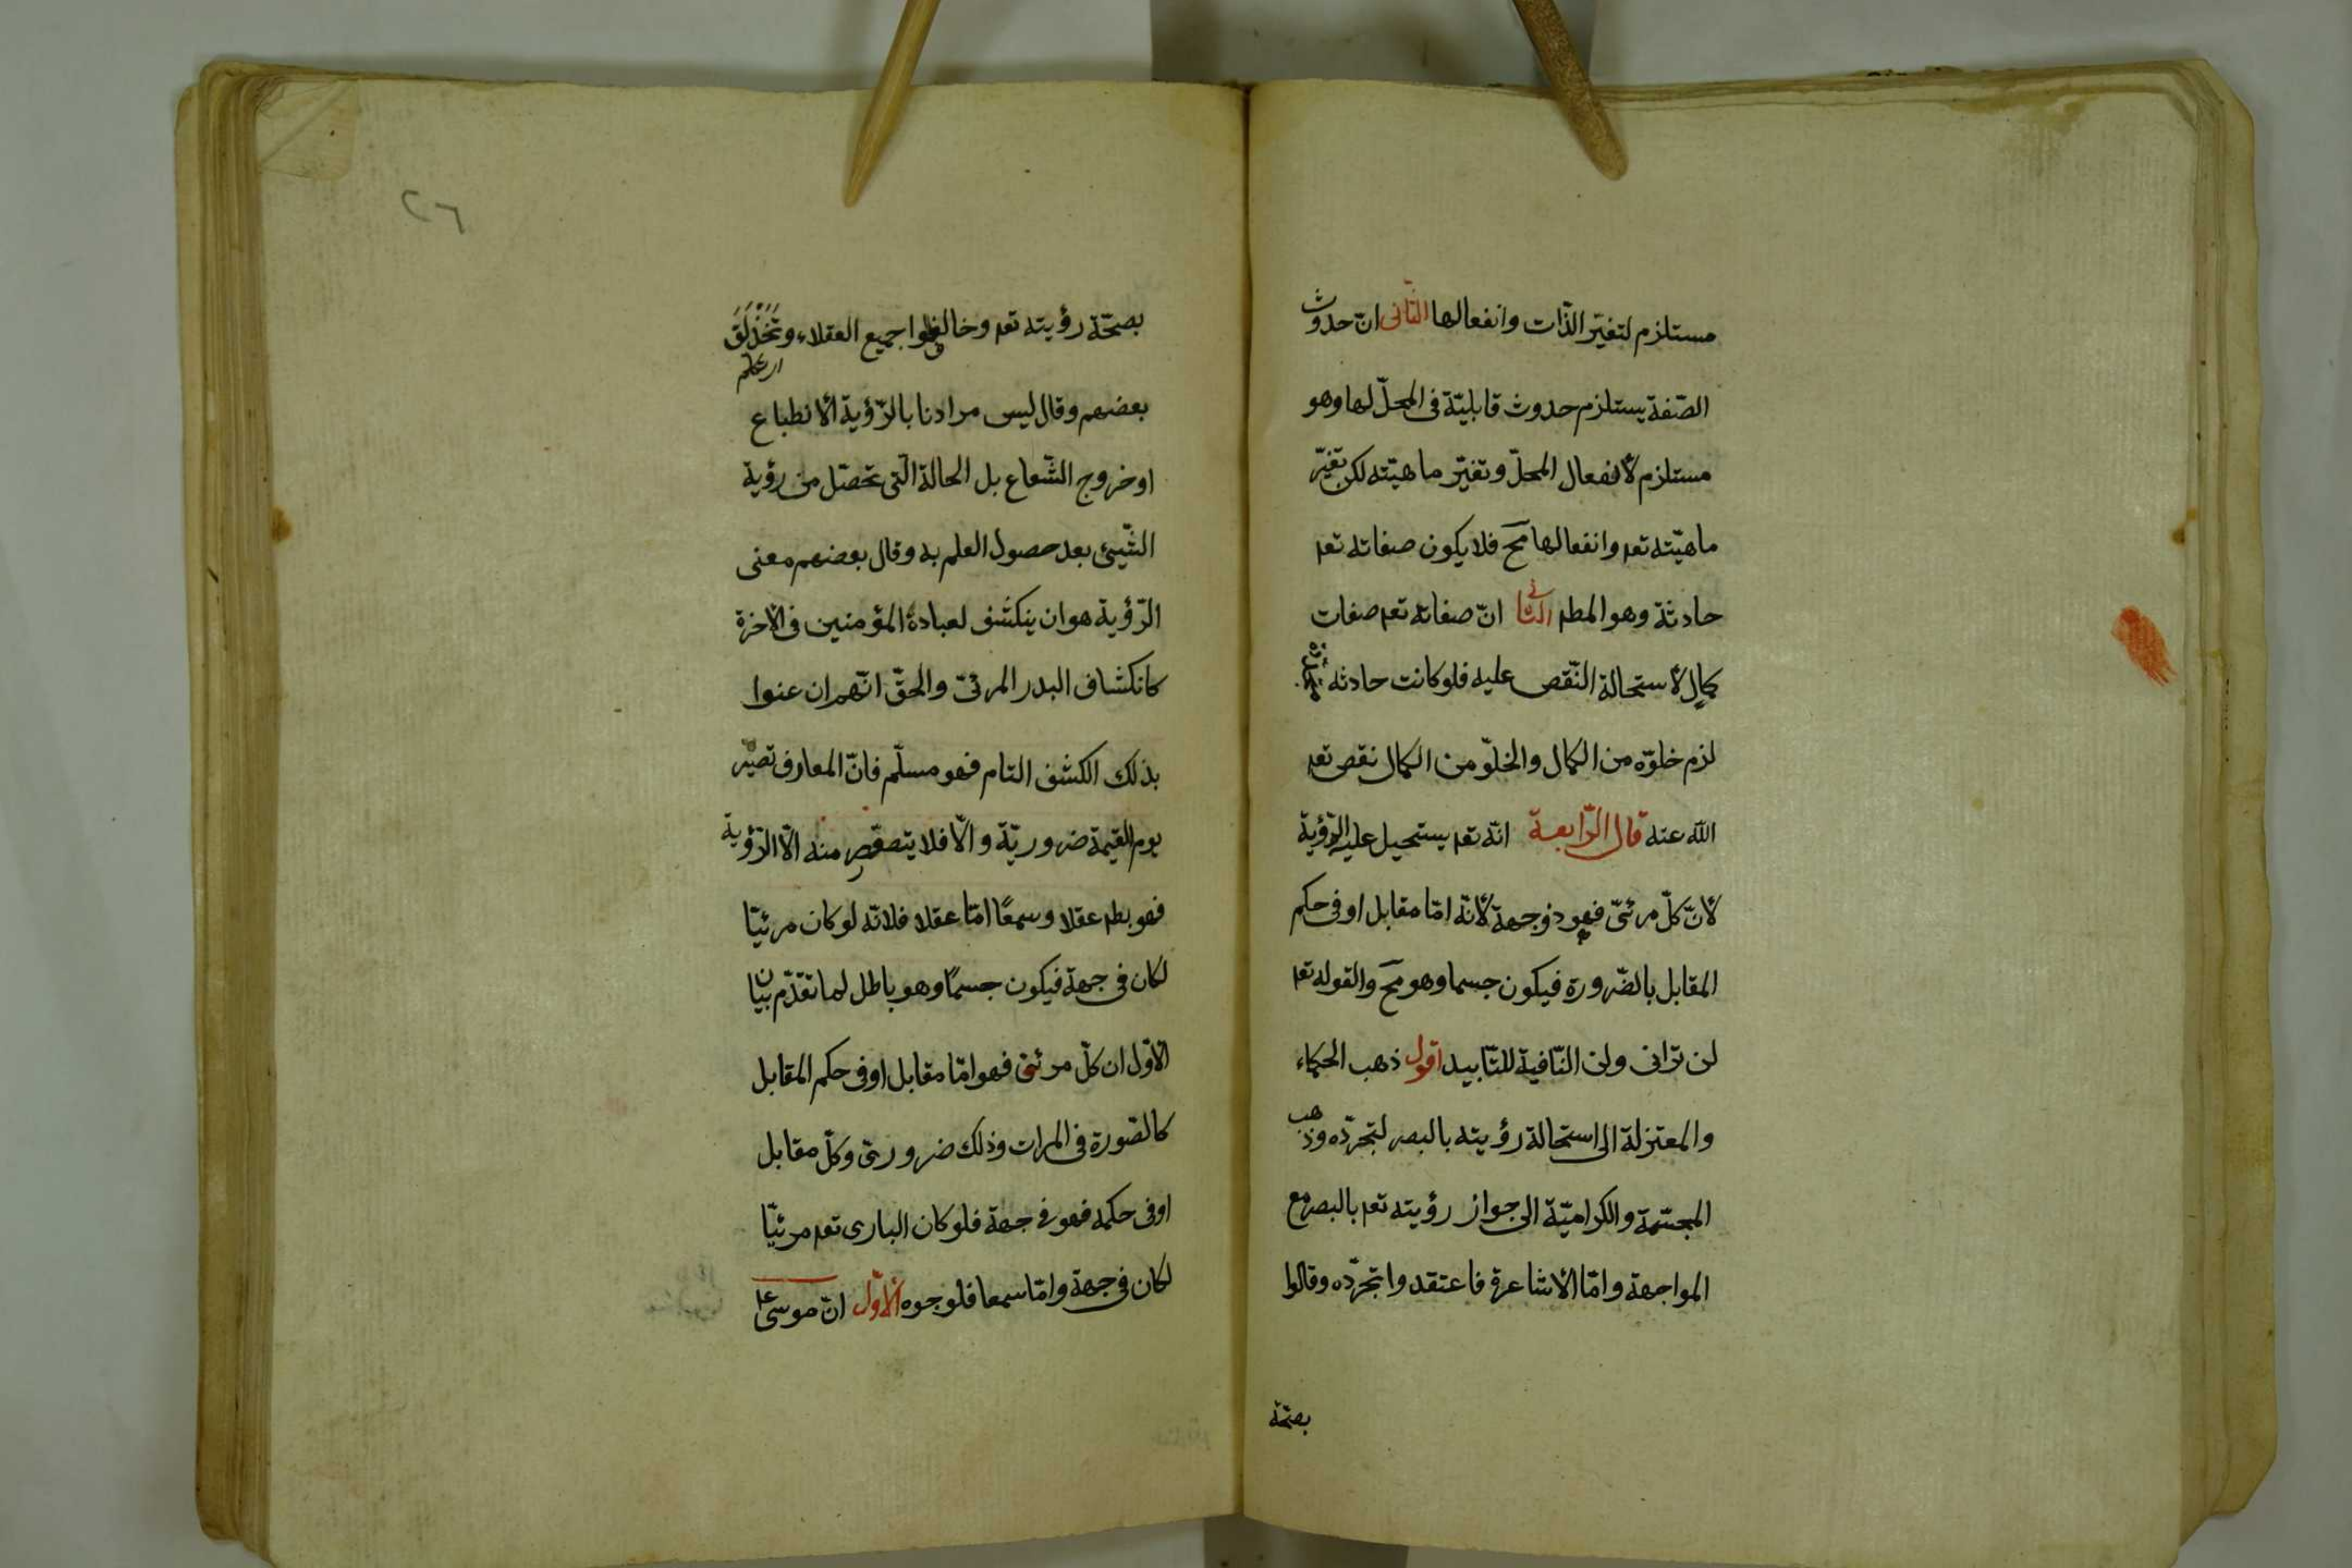 مستلزم لتغيّر الذّات وانفعالها الثّانى انّ حدوث
الصّفة يستلزم حدوث قابليّة فى المحلّ لها وهو
مستلزم لأنفعال المحلّ وتغيّر ماهيّته لكن تغيّر
ماهيّته تعم وانفعالها مح فلا يكون صفاته تعم
حادثة وهو المطم الثانى انّ صفاته تعم صفات
كمال لأستحالة النّقص عليه فلو كانت حادثه
لزم خلوّه من الكمال والخلوّ من الكمال نقص تعم
اللّه عنه قال الرّابعة انّه تعم يستحيل عليه الرّؤية
لأنّ كلّ مرئىّ فهو ذو جهة لأنّه امّا مقابل او فى حكم
المقابل بالضّرورة فيكون جسما وهو مح والقوله تعم
لن ترانى ولن النّافية للتّابيد اقول ذهب الحكماء
والمعتزلة الى استحالة رؤيته بالبصر لتجرّده وذهب
المجسّمة والكراميّة الى جواز رؤيته تعم بالبصر مع
المواجهة وامّا الأشاعرة فاعتقدوا تجرّده وقالوا
بصحّة
٢٦
بصحّة رؤيته تعم وخالفوا جميع العقلاء وتَحَذْلَقَ
بعضهم وقال ليس مرادنا بالرّؤية الأنطباع
او خروج الشّعاع بل الحالة الّتى تحصل من رؤية
الشّيئ بعد حصول العلم به وقال بعضهم معنى
الرّؤية هو ان ينكشف لعباده المؤمنين فى الأخرة
كانكشاف البدر المرئىّ والحقّ انّهم ان عنوا
بذلك الكشف التام فهو مسلّم فانّ المعارف تصير
يوم القيمة ضروريّة والّا فلا يتصوّر منه الّا الرّؤية
فهو بطم عقلا وسمعًا امّا عقلا فلانّه لو كان مرئيّا
لكان فى جهة فيكون جسمًا وهو باطل لما تقدّم بيان
الأوّل ان كلّ مرئىّ فهو امّا مقابل او فى حكم المقابل
كالصّورة فى المرات وذلك ضرورىّ وكلّ مقابل
او فى حكمه فهو فى جهة فلو كان البارى تعم مرئيّا
لكان فى جهة وامّا سمعا فلوجوه الأوّل انّ موسى ع